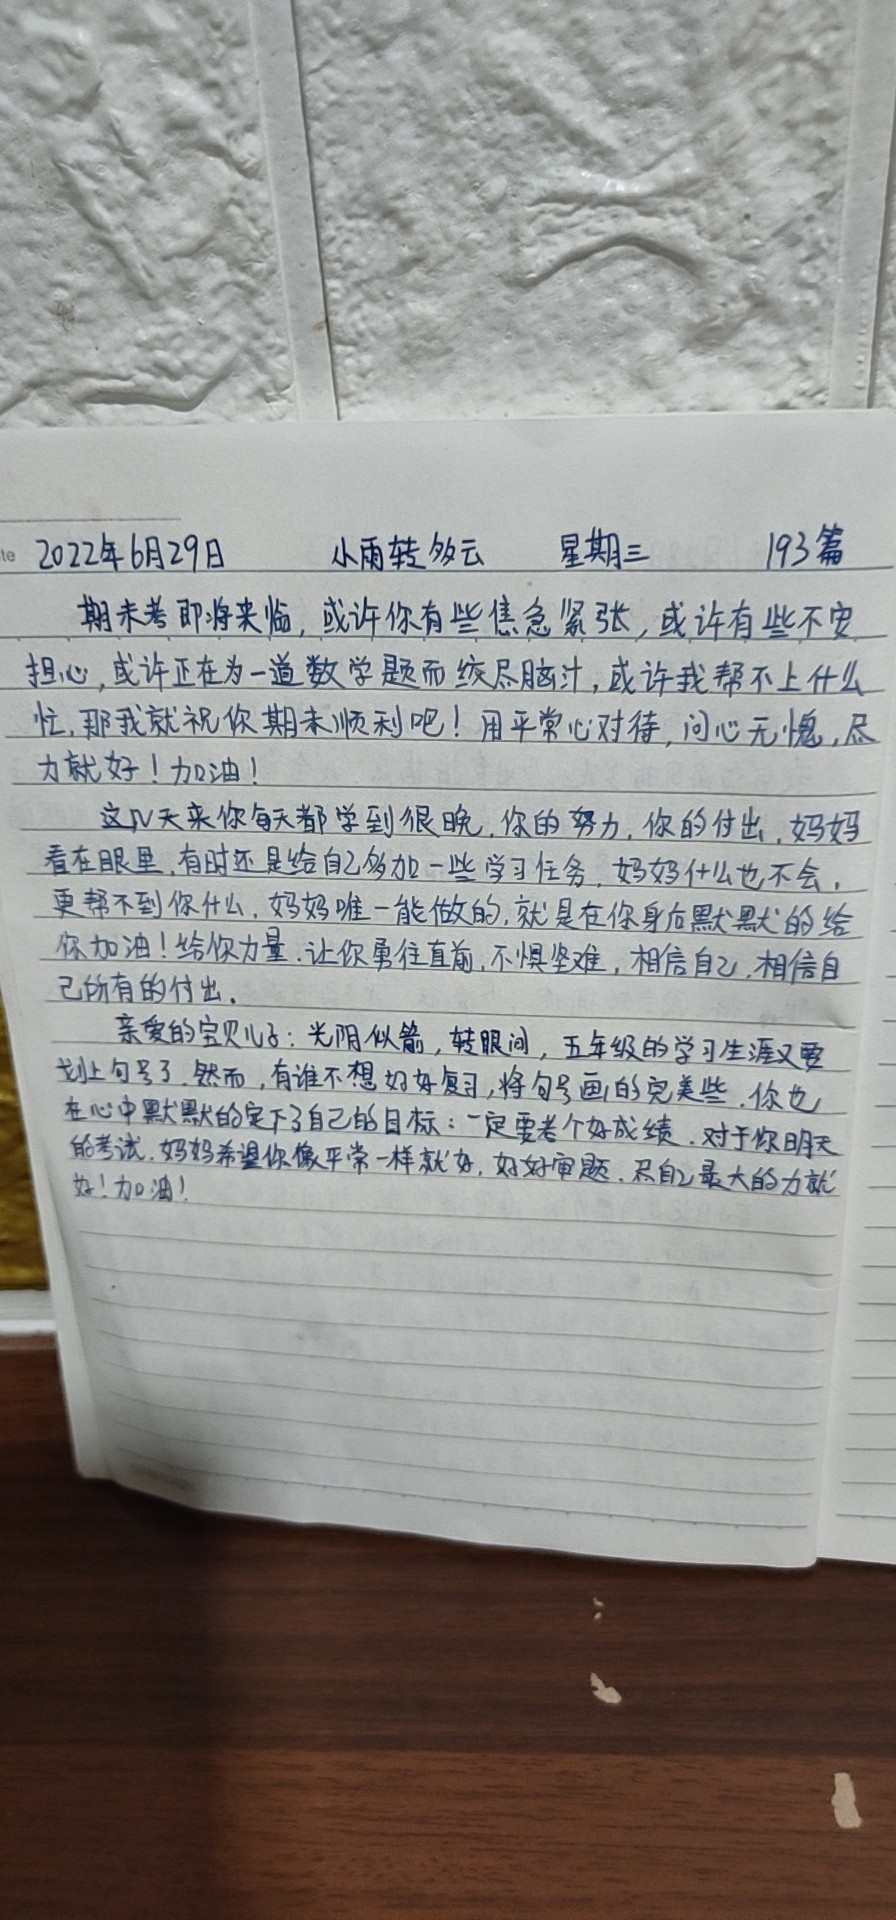 te 2022年6月29日 小雨转多云 星期三 193篇
期末考即将来临,或许你有些焦急紧张,或许有些不安
担心,或许正在为一道数学题而绞尽脑汁,或许我帮不上什么
忙,那我就祝你期末顺利吧!用平常心对待,问心无愧,尽
力就好!加油!
这几天来你每天都学到很晚,你的努力,你的付出,妈妈
看在眼里,有时还是给自己多加一些学习任务,妈妈什么也不会,
更帮不到你什么,妈妈唯一能做的,就是在你身后默默的给
你加油!给你力量,让你勇往直前,不惧坚难,相信自己,相信自
己所有的付出。
亲爱的宝贝儿子:光阴似箭,转眼间,五年级的学习生涯又要
划上句号了,然而,有谁不想好好复习,将句号画的完美些,你也
在心中默默的定下了自己的目标:一定要考个好成绩,对于你明天
的考试,妈妈希望你像平常一样就好,好好审题,尽自己最大的力就
好!加油!